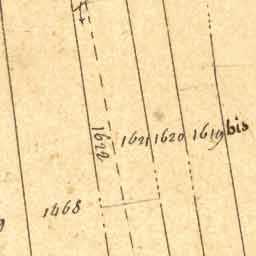 1622
1621 1620 1619 bis
1468